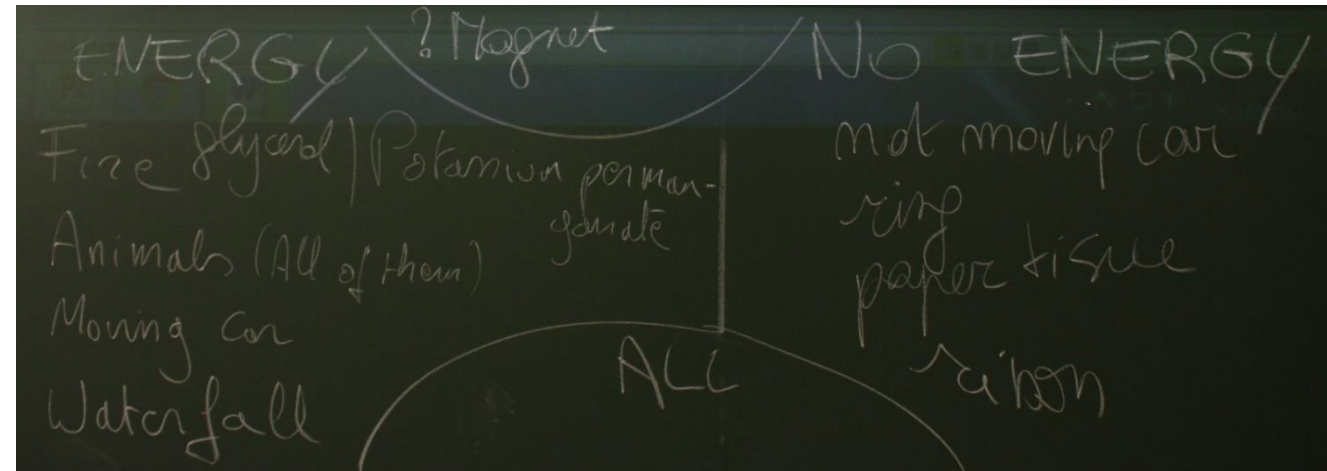 ENERGY
? Magnet
NO ENERGY
Fire glycerol / Potassium perman-
ganate
Animals (All of them)
Moving Car
Waterfall
ALL
not moving car
ring
paper tissue
ribon